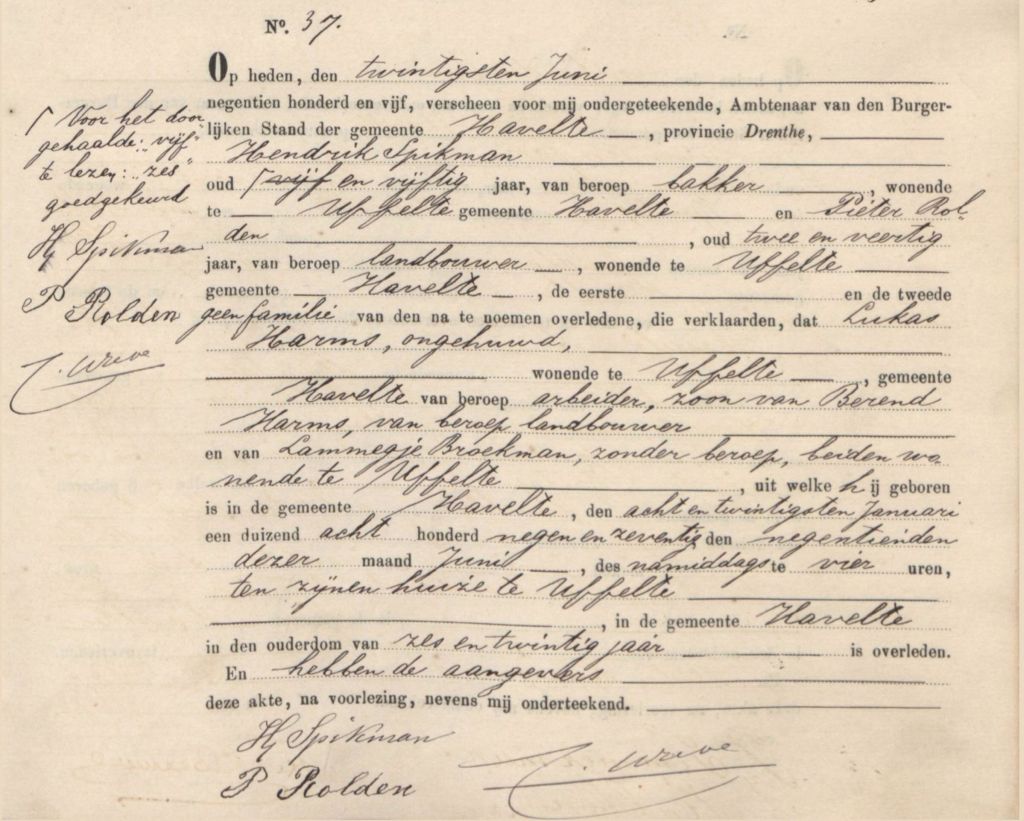 No. 37.
Op heden, den twintigsten Juni
negentien honderd en vijf, verscheen voor mij ondergeteekende, Ambtenaar van den Burger-
lijken Stand der gemeente Havelte, provincie Drenthe,
Hendrik Spikman
oud ⌈ vijf en vijftig jaar, van beroep bakker, wonende
te Uffelte gemeente Havelte en Pieter Rol
den, oud twee en veertig
jaar, van beroep landbouwer, wonende te Uffelte
gemeente Havelte, de eerste en de tweede
geen familie van den na te noemen overledene, die verklaarden, dat Lukas
Harms, ongehuwd,
wonende te Uffelte, gemeente
Havelte van beroep arbeider, zoon van Berend
Harms, van beroep landbouwer
en van Lammegje Broekman, zonder beroep, beiden wo-
nende te Uffelte, uit welke hij geboren
is in de gemeente Havelte, den acht en twintigsten Januari
een duizend acht honderd negen en zeventig den negentienden
dezer maand Juni, des namiddags te vier uren,
ten zijnen huize te Uffelte
, in de gemeente Havelte
in den ouderdom van zes en twintig jaar is overleden.
En hebben de aangevers
deze akte, na voorlezing, nevens mij onderteekend.
Hj Spikman
P Rolden
⌈ Voor het door
gehaalde: „vijf"
te lezen: „zes"
goedgekeurd
Hj Spikman
P Rolden